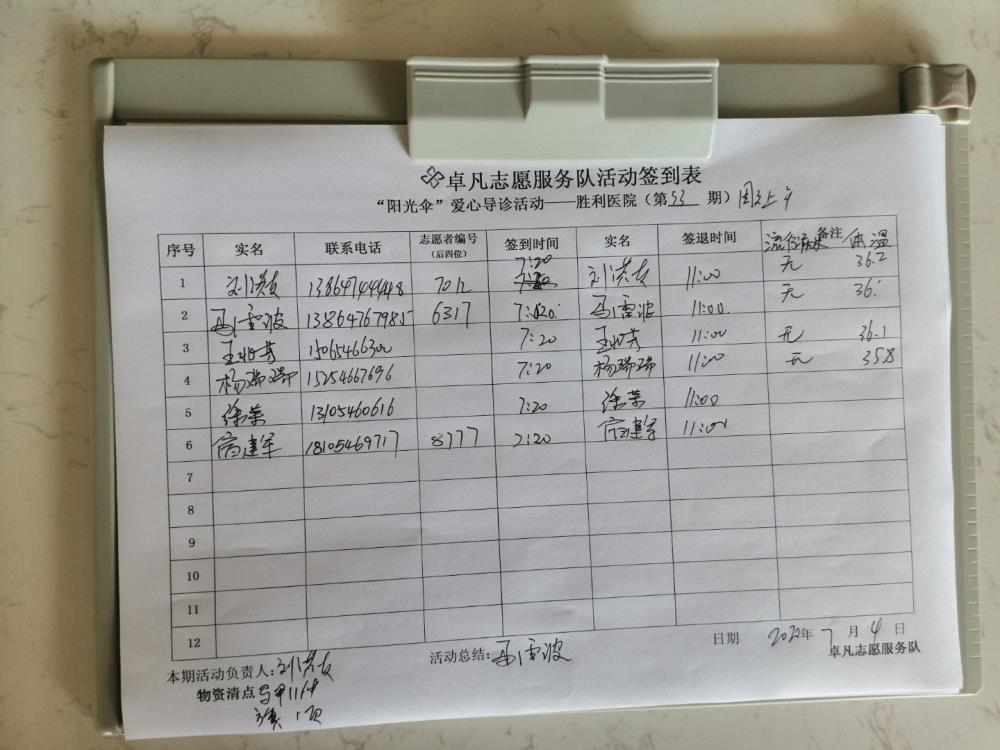 卓凡志愿服务队活动签到表
“阳光伞”爱心导诊活动——胜利医院（第53期）周六上午
序号 实名 联系电话 志愿者编号（后四位） 签到时间 实名 签退时间 备注 体温
1 刘洪友 7012 7:20 刘洪友 11:00 无 36.2
2 马雪波 13864767985 6317 7:20 马雪波 11:00 无 36.
3 7:20 11:00 无 36.1
4 杨瑞瑞 15254667696 7:20 杨瑞瑞 11:00 无 35.8
5 徐荣 13105460616 7:20 徐荣 11:00
6 高建军 18105469717 8777 7:20 高建军 11:00
7
8
9
10
11
12
日期 2020年7月4日
本期活动负责人：刘洪友 活动总结：马雪波 卓凡志愿服务队
物资清点 马甲11件